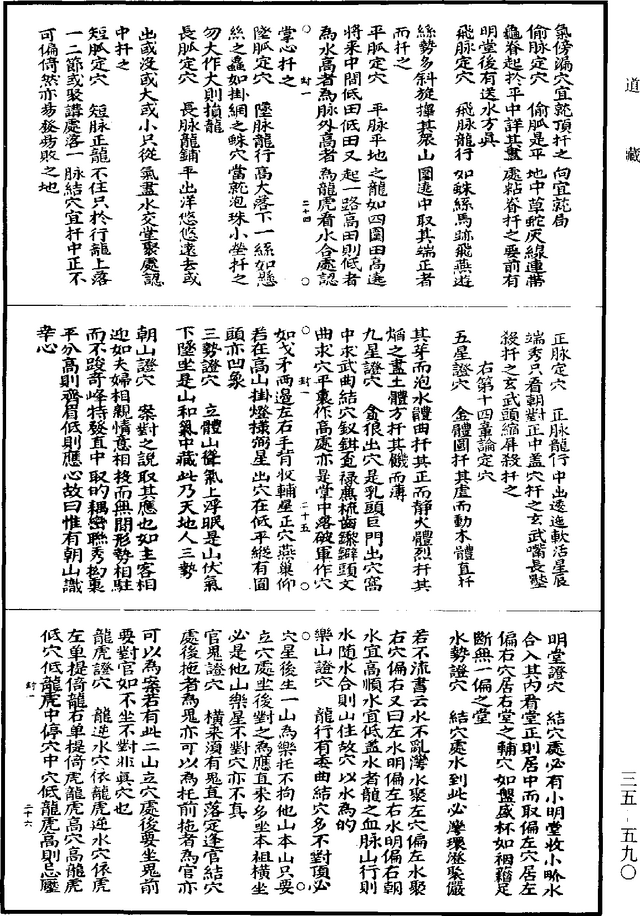 道藏
氣傍漏穴宜就頂扦之向宜就局
偷脉定穴　偷脉是平地中草蛇灰線連帶
龜脊起於平中詳其盡處粘脊扦之要前有
明堂後有送水方眞
飛脉定穴　飛脉龍行如蛛絲馬跡飛燕遊
絲勢多斜旋攞其衆山團遶中取其端正者
而扦之
平脉定穴　平脉平地之龍如四圍田高遶
將來中間低田低田又起一路高田則低者
為水高者為脉外高者為龍虎看水合處認
掌心扦之
陸脉定穴　陸脉龍行高大落下一絲如懸
絲之蟲如掛網之蛛穴當就泡珠小坐扦之
勿大作大則損龍
長脉定穴　長脉龍鋪平出洋悠悠遠去或
出或沒或大或小只從氣盡水交堂聚處認
中扦之
短脉定穴　短脉正龍不住只於行龍上落
一二節或聚講處落一脉結穴宜扦中正不
可偏倚然亦易發易敗之地
正脉定穴　正脉龍行中出逶迤軟活星辰
端秀只看朝對正中蓋穴扦之玄武嘴長墜
殺扦之玄武頭縮屏殺扦之
右第十四章論定穴
五星證穴　金體圓扦其虛而動木體直扦
其芽而泡水體曲扦其正而靜火體烈扦其
熖之盡土體方扦其㡬而薄
九星證穴　貪狼出穴是乳頭巨門出穴窩
中求武曲結穴釵鉗覔祿㢘梳齒鐴頭文
曲求穴平裏作高處亦是掌中落破軍作穴
如戈矛兩邊左右手肯收輔星正穴燕巢仰
若在高山掛燈樣弼星出穴在低平縱有圓
頭亦凹象
三勢證穴　立體山聳氣上浮眠是山伏氣
下墜坐是山和氣中藏此乃天地人三勢
朝山證穴　案對之說取其應也如主客相
迎如夫婦相親情意相投而無閒形勢相駐
而不踆奇峰特發直中取的耦巒聯秀抅裏
平分高則齊眉低則應心故曰惟有朝山識
幸心
明堂證穴　結穴處必有小明堂收小畍水
合入其內看堂正則居中而取偏左穴居左
偏右穴居右堂之輔穴如盤盛杯如裀藉足
斷無一偏之堂
水勢證穴　結穴處水到此必灣環澄聚儼
若不流書云水不亂灣水聚左穴偏左水聚
右穴偏右又曰左水明偏左右水明偏右朝
水宜高順水宜低盖水者龍之血脉山行則
水隨水合則山住故穴以水為的
樂山證穴　龍行有委曲結穴多不對頂必
穴星後生一山為樂托不拘他山本山只要
立穴處坐後對之為應直来多坐本祖橫坐
必是他山樂星不對穴亦不真
官鬼證穴　橫来須有鬼直落定逢官結穴
處後拖者為鬼亦可以為托前拖者為官亦
可以為案若有此二山立穴處後要坐鬼前
要對官如不坐不對非真穴也
龍虎證穴　龍逆水穴依龍虎逆水穴依虎
左單提倚龍右單提倚虎龍虎高穴高龍虎
低穴低龍虎中停穴中穴低龍虎高則忌壓
封一　二十四
封一　二十五
封一　二十六
三五－五九〇